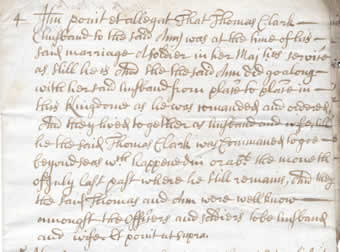 4 Item ponit et allegat That Thomas Clark
husband to the said Ann was at the time of his
said marriage a soldier in her Maj:ties service
as still he is And she the said Ann did go along
with her said husband from place to place in
this Kingdome as he was comanded and ordered
And they lived together as husband and wife till
he the said Thomas Clark was Commanded to goe
beyond seas wch happened in or abt the moneth
of July last past where he still remains, and they
the said Thomas and Ann were well know
amongst the officers and soldiers to be husband
and wife Et ponit ut supra.